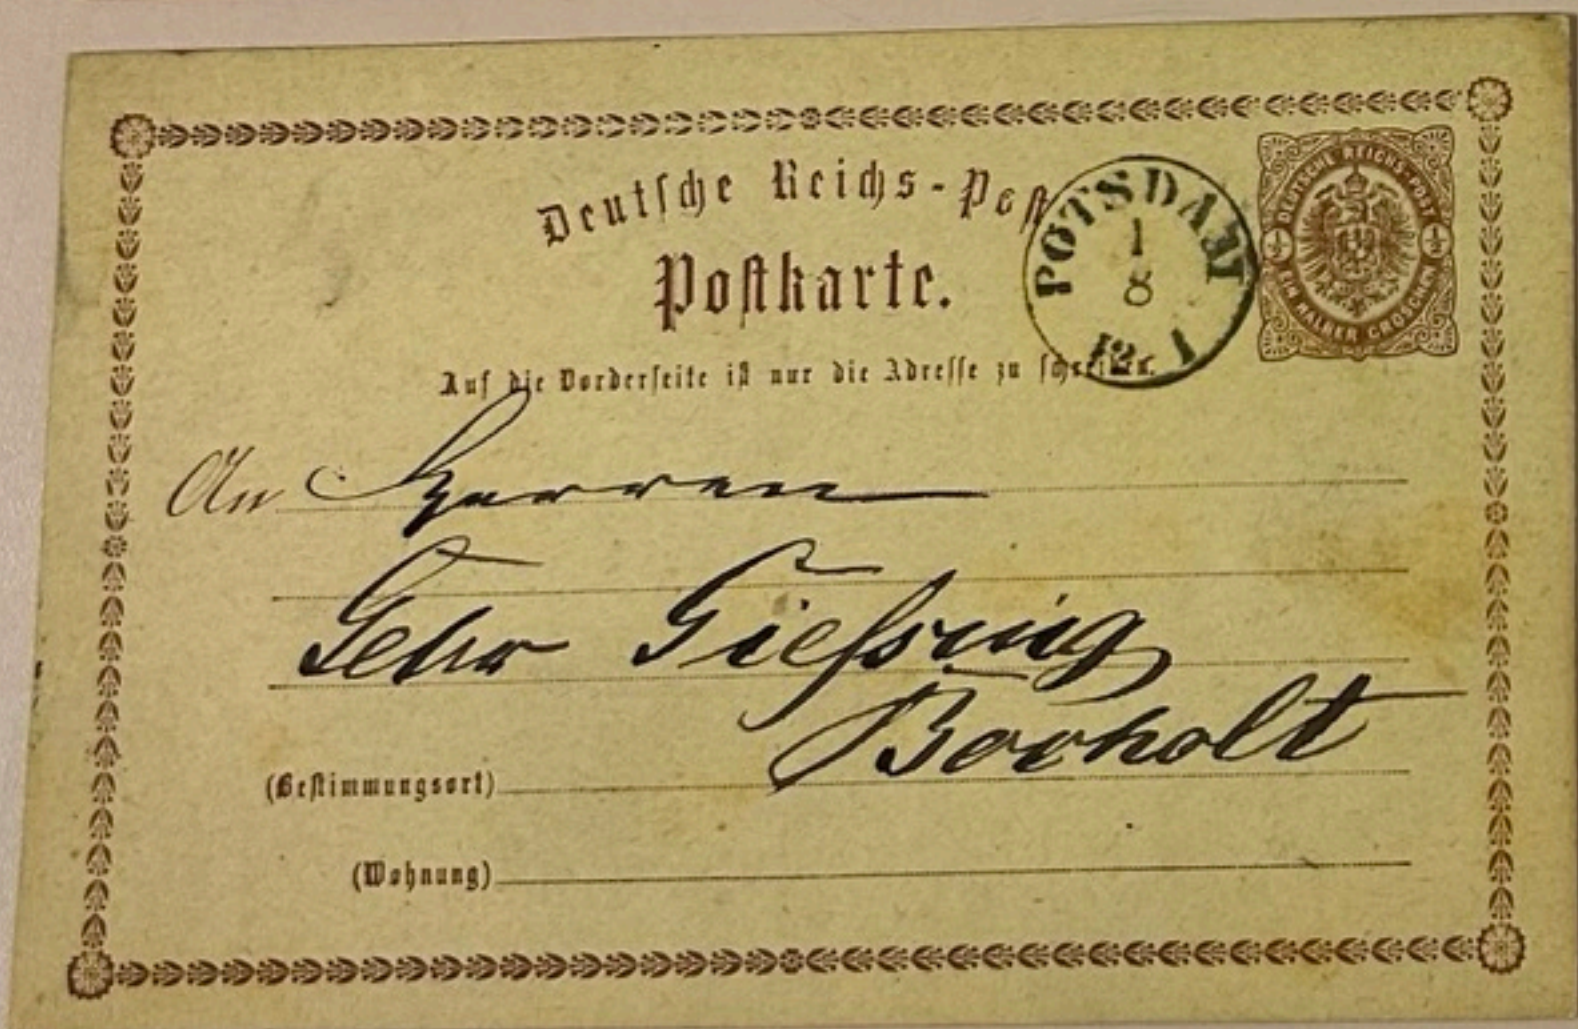 Deutsche Reichs-Post
Postkarte.
POTSDAM
1
8
12 1
DEUTSCHE REICHS-POST
½ ½
EIN HALBER GROSCHEN
Auf die Vorderseite ist nur die Adresse zu schreiben.
An Herren
Gebr Gießing
Bocholt
(Bestimmungsort)
(Wohnung)